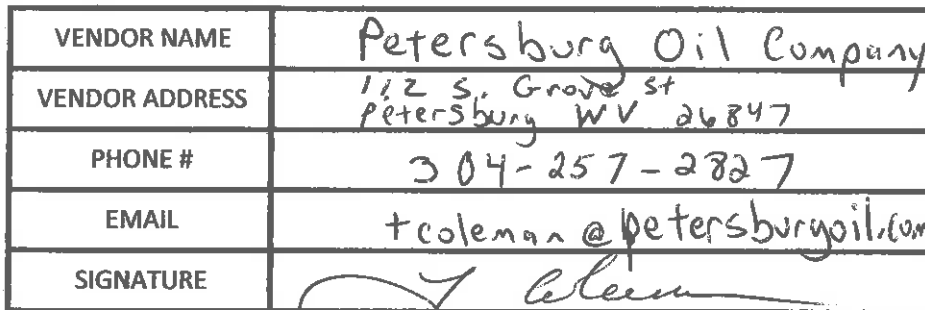 VENDOR NAME Petersburg Oil Company
VENDOR ADDRESS 112 S. Grove St
Petersburg WV 26847
PHONE # 304-257-2827
EMAIL tcoleman@petersburgoil.com
SIGNATURE